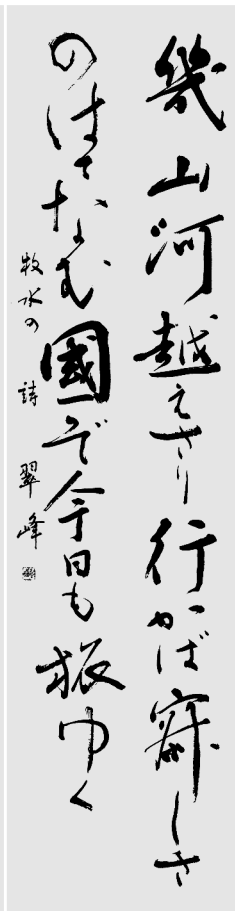 幾山河越えさり行かば寂しさ
のはてなむ國ぞ今日も旅ゆく
牧水の詩 翠峰